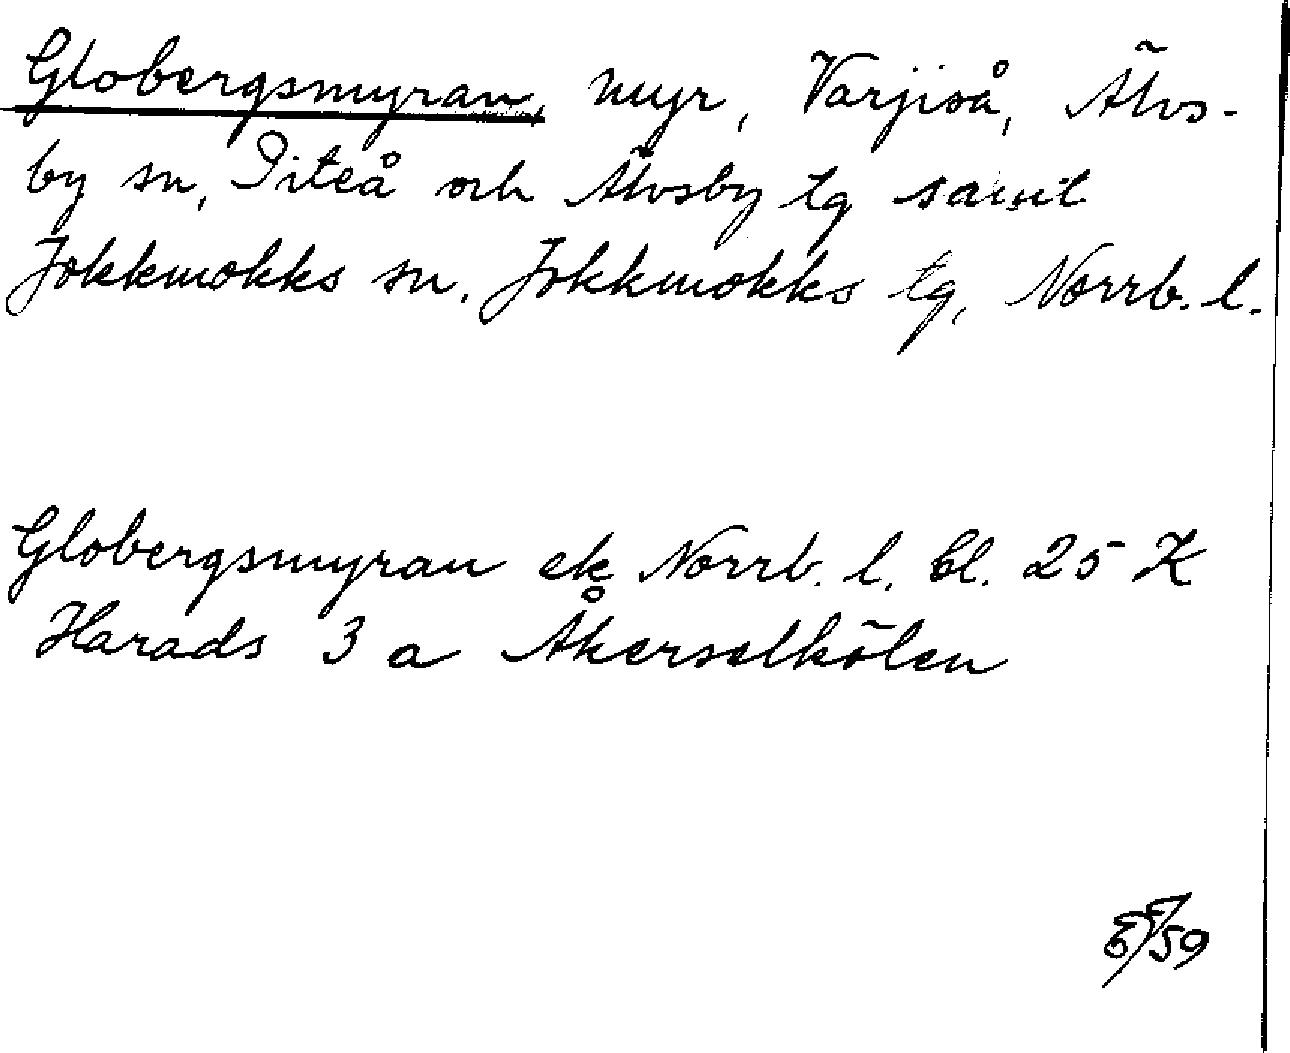 Globergsmyran, myr, Varjiså, Älvs-
by sn, Piteå och Älvsby tg samt
Jokkmokks sn, Jokkmokks tg, Norrb. l.
Globergsmyran ek Norrb. l. bl. 25 K
Harads 3 a Åkerselkölen